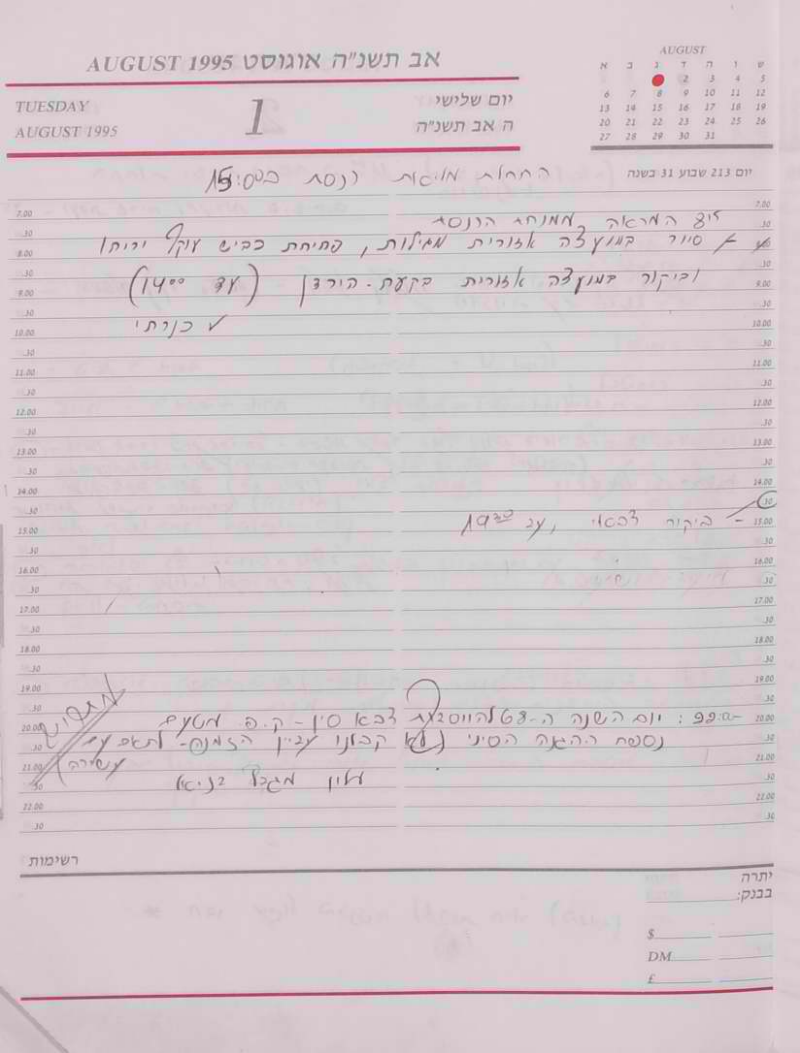 אב תשנ"ה אוגוסט AUGUST 1995
AUGUST
א ב ג ד ה ו ש
2 3 4 5
6 7 8 9 10 11 12
13 14 15 16 17 18 19
20 21 22 23 24 25 26
27 28 29 30 31
TUESDAY
AUGUST 1995
1
יום שלישי
ה אב תשנ"ה
יום 213 שבוע 31 בשנה
התחלת מליאת כנסת ב-15:00
7.00
.30
יציאה ממנחת הכנסת
8.00
סיור במועצה אזורית מגילות, פתיחת כביש עוקף יריחו
.30
וביקור במועצה אזורית בקעת-הירדן (עד 14:00)
9.00
.30
10.00
.30
11.00
.30
12.00
.30
13.00
.30
14.00
.30
15.00
ביקור צבאי, עד 19:30
.30
16.00
.30
17.00
.30
18.00
.30
19.00
.30
20.00
יום השנה ה-68 להיווסדות צבא סין - ק.פ מטעם
.30
נספח ההגנה הסיני
21.00
.30
22.00
.30
רשימות
יתרה
בבנק:
$
DM
£